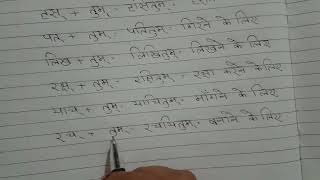 हस् + तुम्
पत् + तुम् - पतितुम् - गिरने के लिए
लिख् + तुम् - लिखितुम् - लिखने के लिए
रक्ष् + तुम् - रक्षितुम् - रक्षा करने के लिए
याच् + तुम् - याचितुम् - माँगने के लिए
रच् + तुम् - रचयितुम् - बनाने के लिए